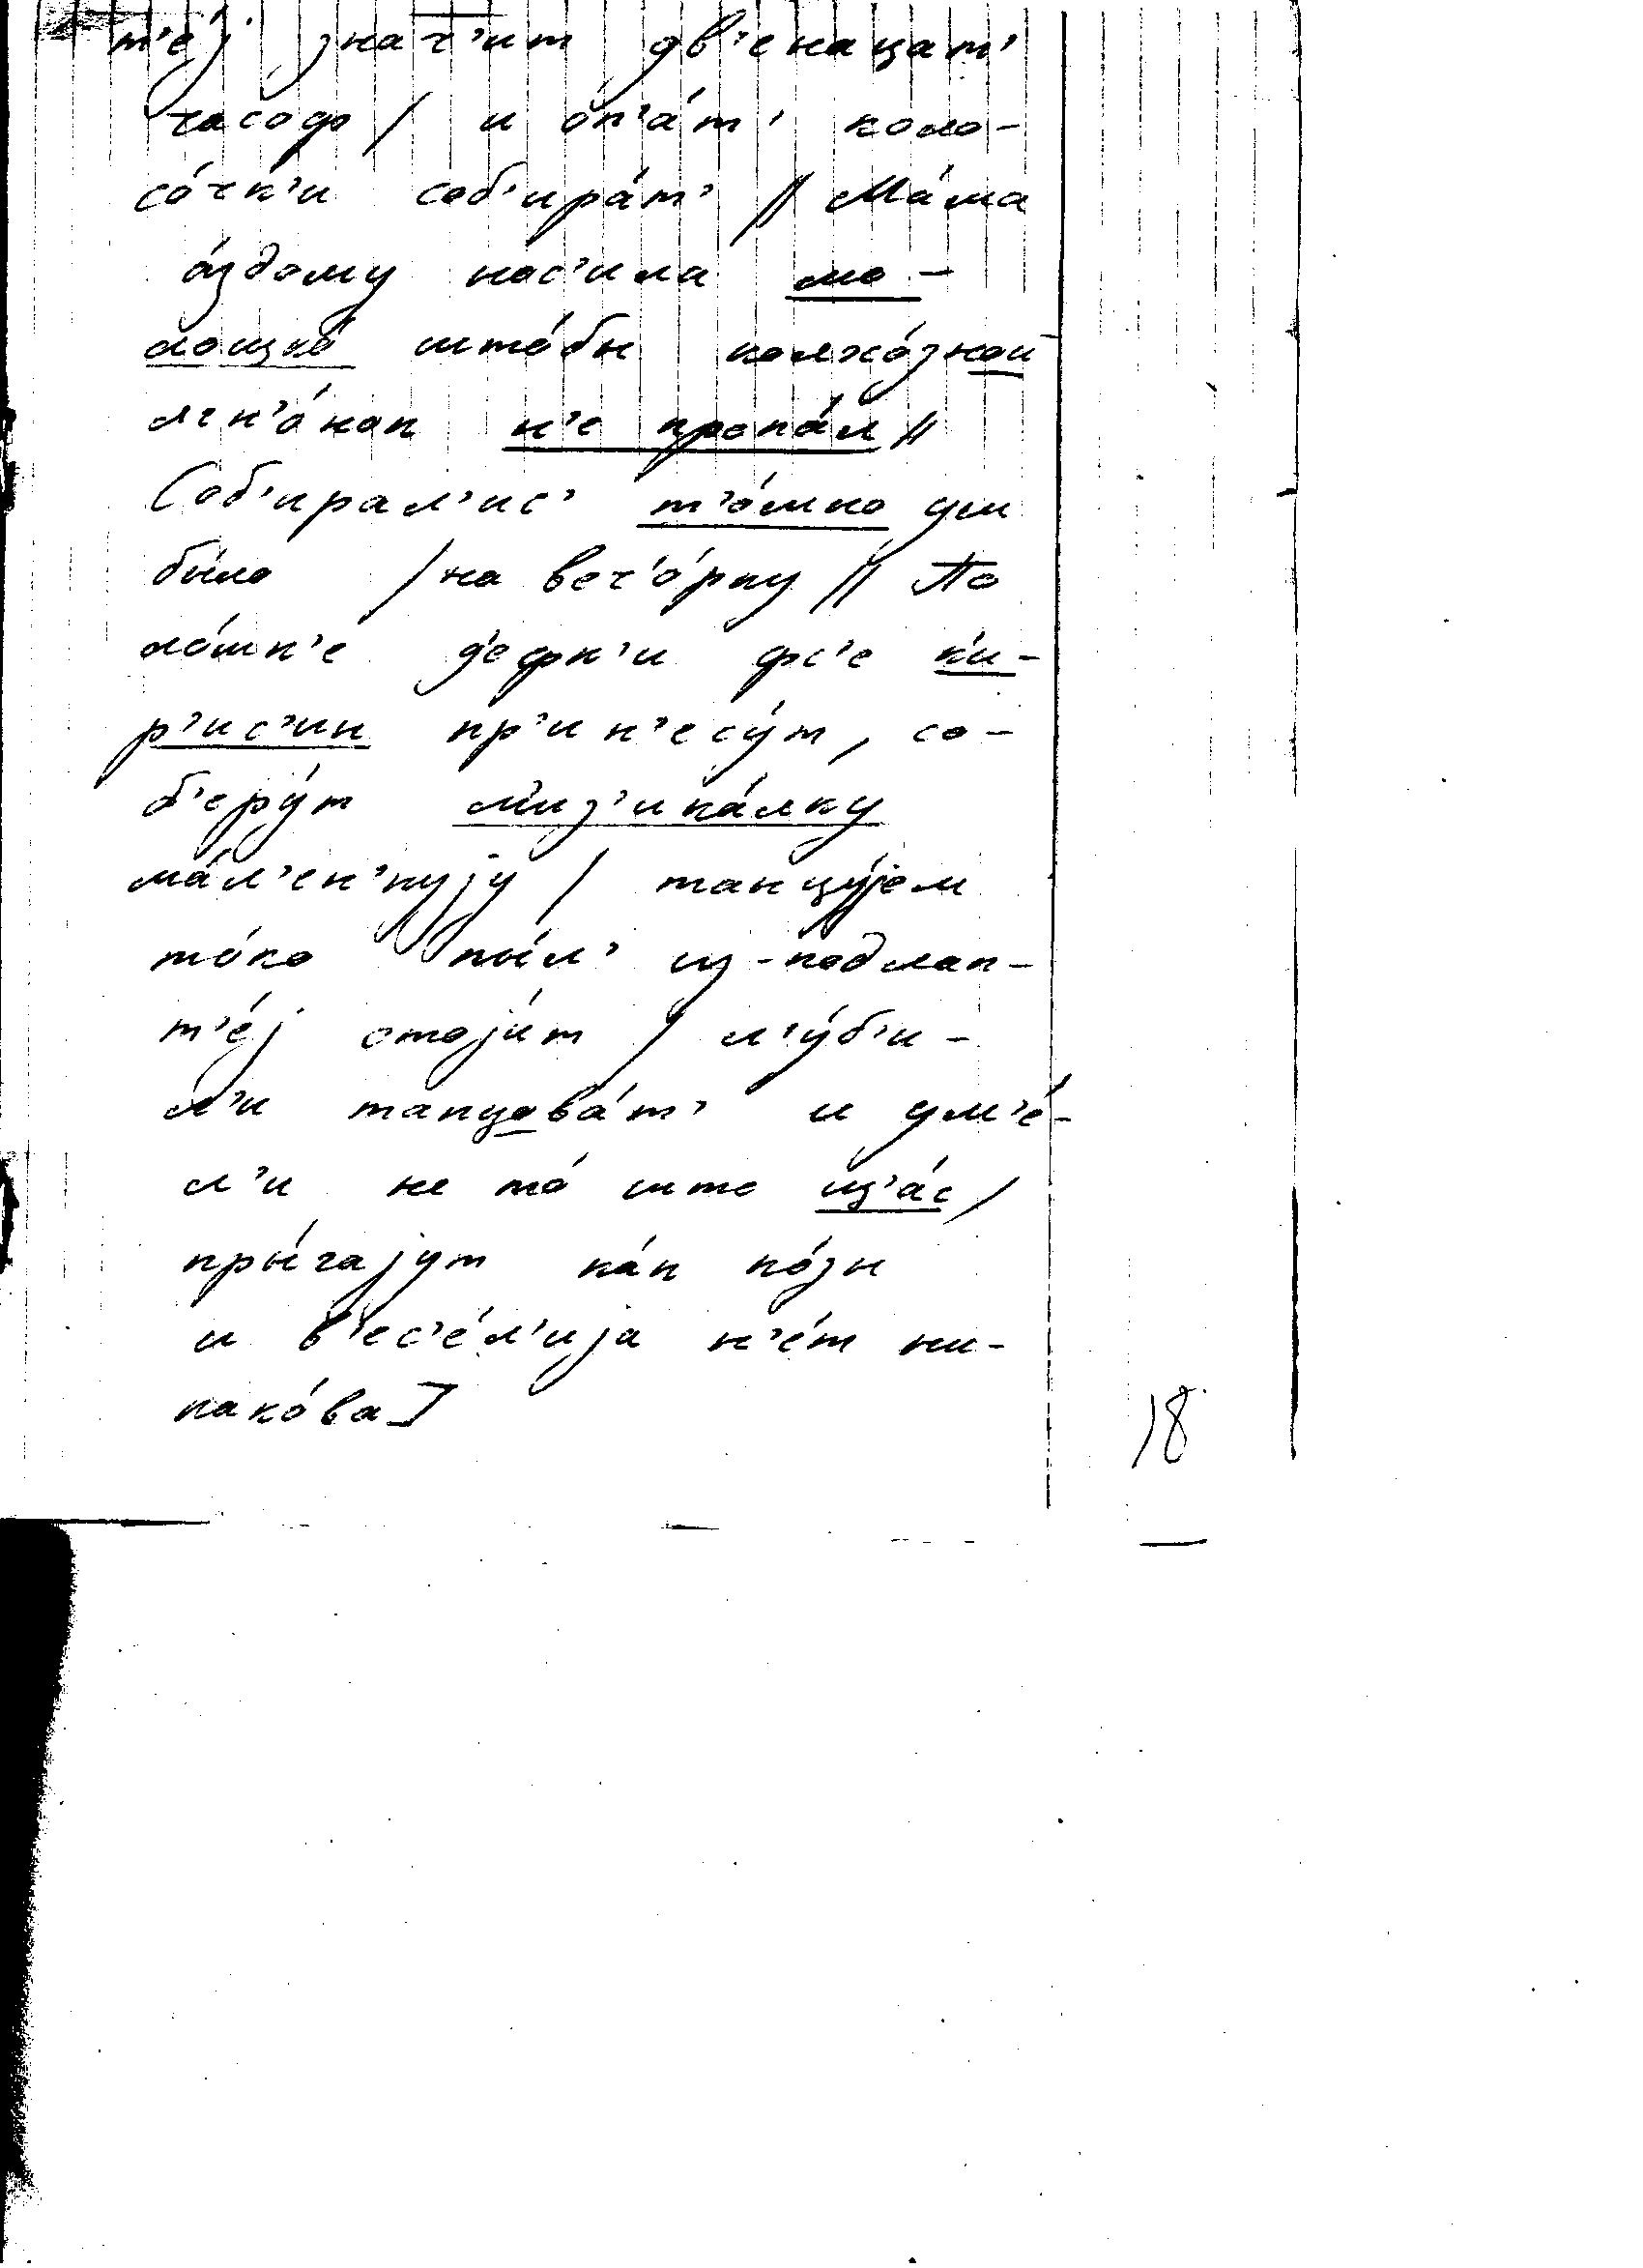 т'е́j знач'ит дв'енацат'
часоф / и оп'а́т' коло-
со́чк'и соб'ира́т' // Ма́ма
о́здому нос'ила мо-
лоцко́ што́бы колхо́зной
л'н'о́нок н'е пропа́л //
Соб'ирал'ис' т'о́мно уш
бы́ло / на веч'о́рку // По
ло́шк'е д'ефк'и фс'е к'и-
р'ис'ин пр'ин'есу́т, со-
б'еру́т м'из'ика́лку
ма́л'ен'куjу / танцу́jем
то́ко пы́л' из-под лап-
т'е́j стоjи́т / л'у́б'и-
л'и танцова́т' и ум'е́-
л'и не то́ што щ'а́с /
пры́гаjут ка́к ко́зы
и в'ес'е́л'иjа н'е́т ни-
како́ва]
18